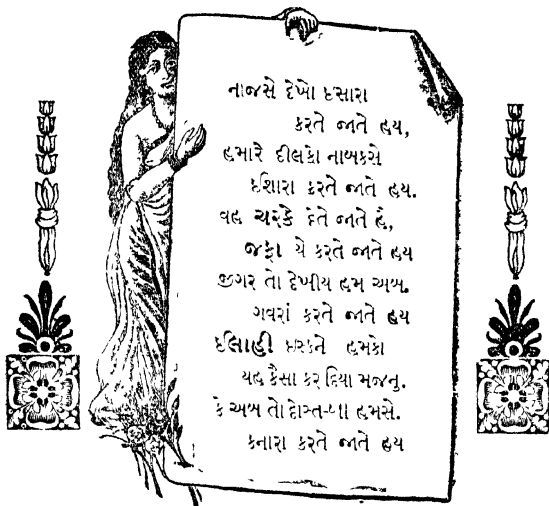 નાજસે દેખો ઇસારા
કરતે જાતે હય,
હમારે દીલકો નાખકસે
ઈશારા કરતે જાતે હય.
વહ ચરકે દેતે જાતે હૈ,
જફા યે કરતે જાતે હય
જીગર તો દેખીય હમ અબ.
ગવરાં કરતે જાતે હય
ઈલાહી ઇશ્કને હમકો
યહ કૈસા કર દિયા મજનુ.
કે અબ તો દોસ્ત-બી હમસે.
કનારા કરતે જાતે હય